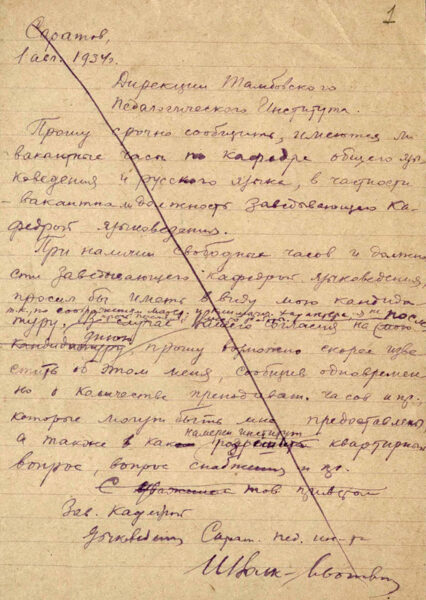 1
Саратов,
1 авг. 1934г.
Дирекции Тамбовского
Педагогического Института.
Прошу срочно сообщить, имеются ли
вакантные часы по кафедре общего язы
коведения и русского языка, в частности
вакантна должность заведывающего ка-
федрой языковедения.
При наличии свободных часов и должно
сти заведывающего кафедрой языковедения,
просил бы иметь в виду мою кандида
туру. В случае Вашего согласия на мою
кандидатуру прошу возможно скорее изве
стить об этом меня, сообщив одновремен
но о количестве преподават. часов и пр.
которые могут быть мне предоставлены,
намерен институт
а также как разрешить квартирный
вопрос, вопрос снабжения и пр.
С уважением тов приветом
Зав. Кафедрой
Языковеден Сарат. пед. ин-та